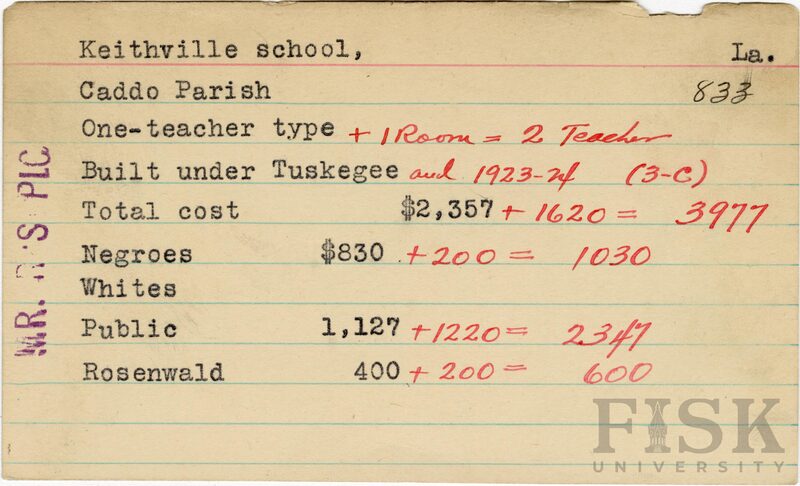 Keithville school, La.
833
Caddo Parish
One-teacher type + 1 Room = 2 Teacher
Built under Tuskegee and 1923-24 (3-C)
Total cost $2,357 + 1620 = 3977
Negroes $830 + 200 = 1030
Whites
Public 1,127 + 1220 = 2347
Rosenwald 400 + 200 = 600
MR. R'S PLC
FISK
UNIVERSITY